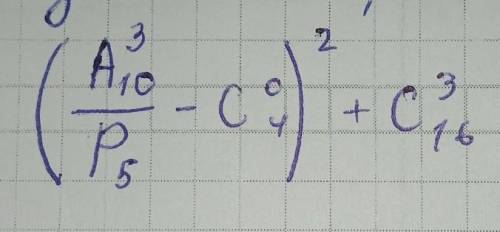 (A₁₀³ / P₅ - C₄⁰)² + C₁₆³